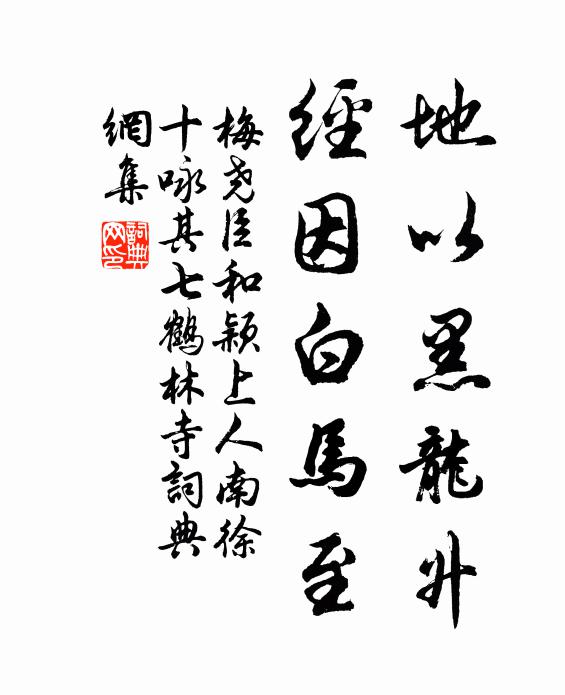 地以黑龍升
經因白馬至
梅堯臣和穎上人南徐
十咏其七鶴林寺詞典
網集
詞典網印